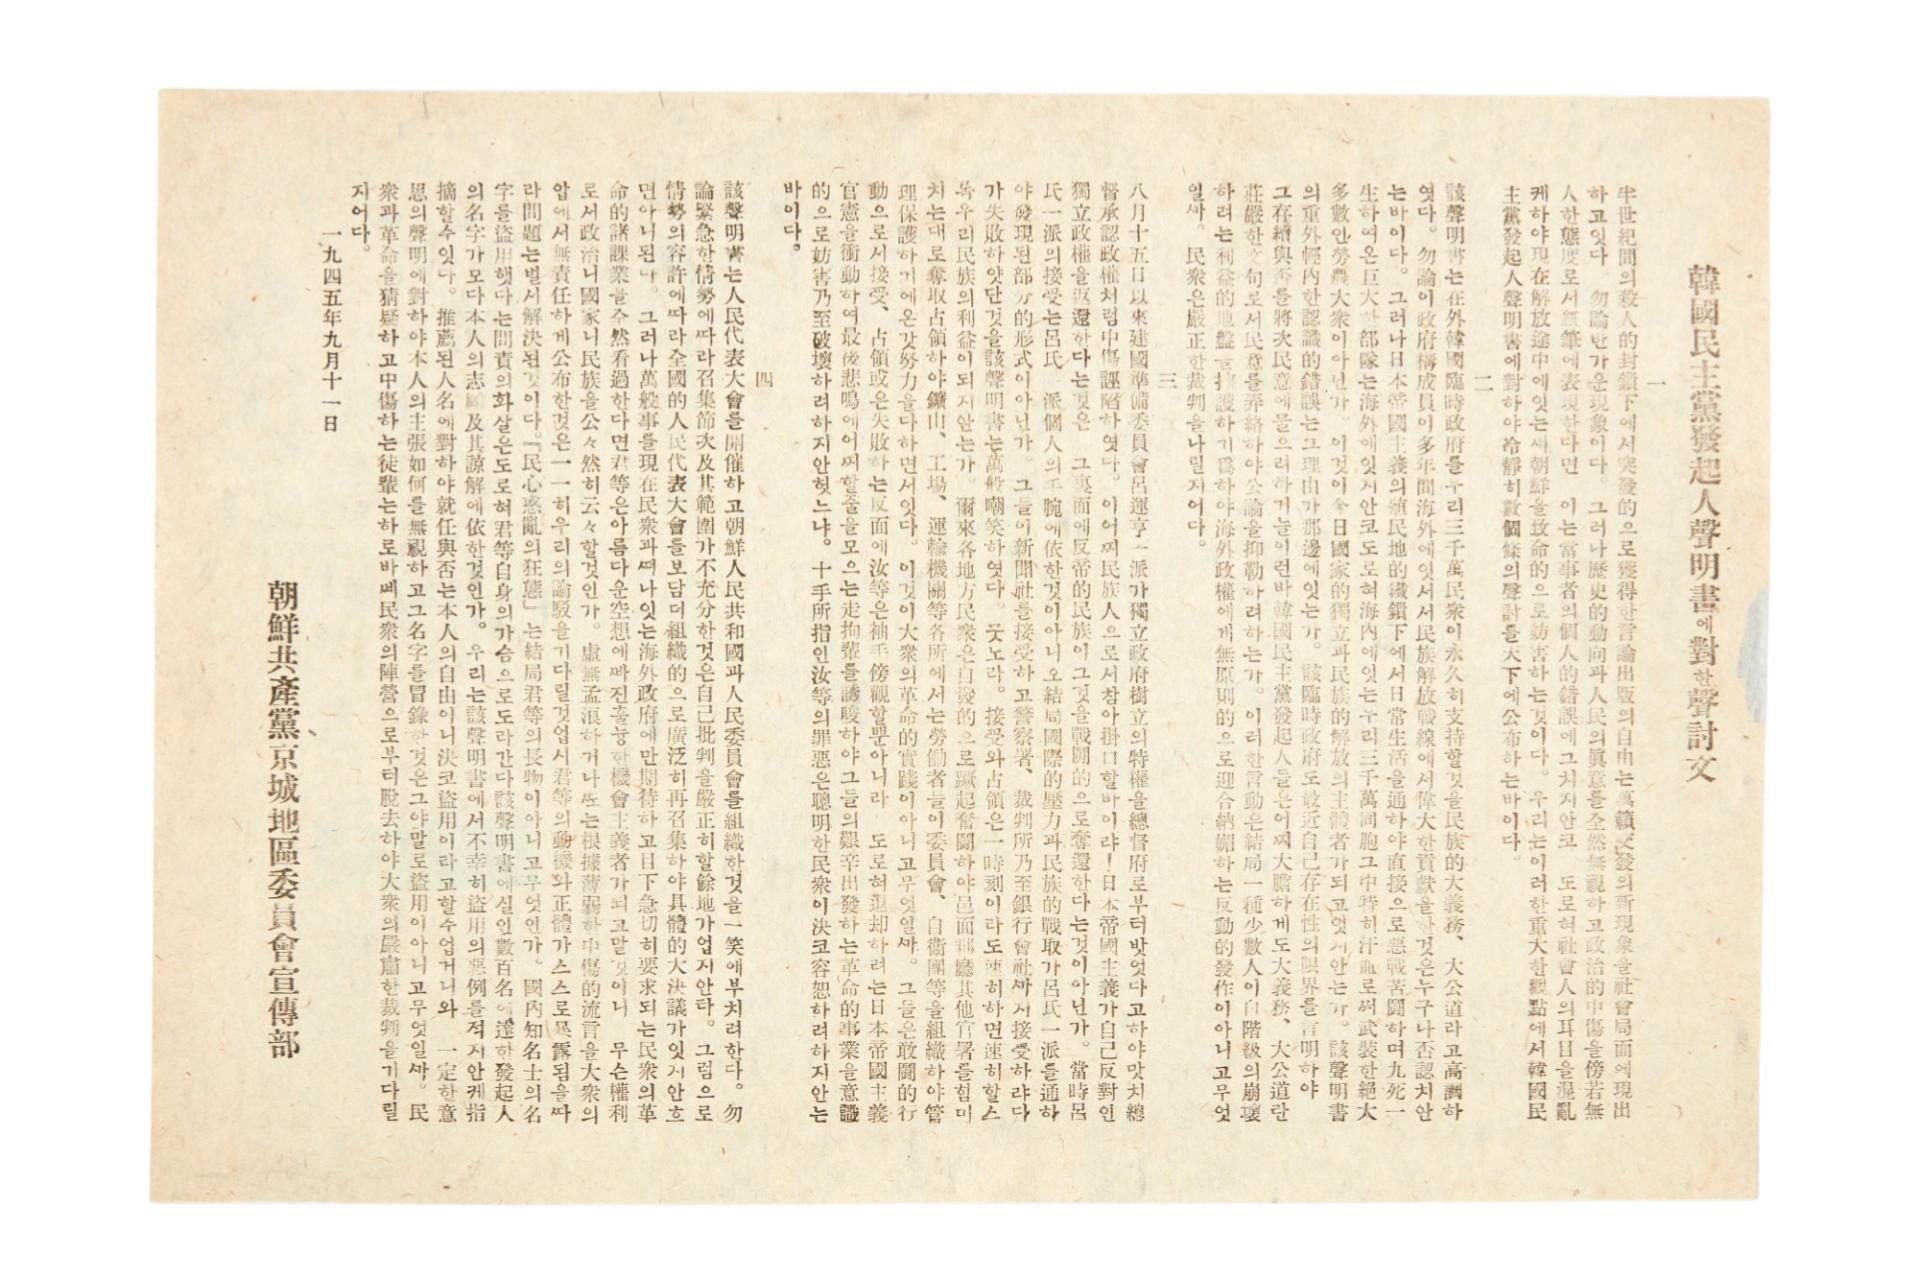 韓國民主黨發起人聲明書에對한聲討文
一
半世紀間의殺人的封鎖下에서突發的으로獲得한言論出版의自由는萬籟交發의新現象을社會局面에現出
하고잇다. 勿論반가운現象이다. 그러나歷史的動向과人民의眞意를全然無視하고政治的中傷을傍若無
人한態度로서無筆에表現한다면 이는當事者의個人的錯誤에그치지안코 도로혀社會人의耳目을混亂
케하야現在解放途中에잇는새朝鮮을致命的으로妨害하는것이다. 우리는이러한重大한觀點에서韓國民
主黨發起人聲明書에對하야冷靜히數個條의聲討를天下에公布하는바이다.
二
該聲明書는在外韓國臨時政府를우리三千萬民衆이永久히支持할것을民族的大義務、大公道라고高調하
엿다. 勿論이政府構成員이多年間海外에잇서서民族解放戰線에서偉大한貢獻을한것은누구나否認치안
는바이다. 그러나日本帝國主義의殖民地的鐵鎖下에서日常生活을通하야直接으로惡戰苦鬪하며九死一
生하여온巨大한部隊는海外에잇지안코도로혀海內에잇는우리三千萬同胞그中特히汗血로써武裝한絕大
多數인勞農大衆이아닌가. 이것이今日國家的獨立과民族的解放의主體者가되고잇지안는가. 該聲明書
의重外輕內한認識的錯誤는그理由가那邊에잇는가. 該臨時政府도最近自己存在性의限界를言明하야
그存續與否를將次民意에물으려하거늘이런바韓國民主黨發起人들은어찌大膽하게도大義務、大公道란
莊嚴한文句로서民意를弄絡하야公論을抑勒하려하는가. 이러한言動은結局一種少數人이自階級의崩壞
하려는利益的地盤을擁護하기爲하야海外政權에게無原則的으로迎合納媚하는反動的發作이아니고무엇
일싸. 民衆은嚴正한裁判을나릴지어다.
三
八月十五日以來建國準備委員會呂運亨一派가獨立政府樹立의特權을總督府로부터밧엇다고하야맛치總
督承認政權처럼中傷誣陷하엿다. 이어찌民族人으로서참아掛口할바이랴!日本帝國主義가自己反對인
獨立政權을返還한다는것은 그裏面에反帝的民族이그것을戰鬪的으로奪還한다는것이아닌가. 當時呂
氏一派의接受는呂氏一派個人의手腕에依한것이아니오結局國際的壓力과民族的戰取가呂氏一派를通하
야發現된部分的形式이아닌가. 그들이新聞社를接受하고警察署、裁判所乃至銀行會社까지接受하랴다
가失敗하얏단것을該聲明書는萬般嘲笑하엿다. 웃노라. 接受와占領은一時刻이라도速히하면速히할스
록우리民族의利益이되지안는가. 爾來各地方民衆은自發的으로蹶起奮鬪하야邑面郡廳其他官署를힘미
처는대로奪取占領하야鑛山、工場、運輸機關等各所에서는勞働者들이委員會、自衛團等을組織하야管
理保護하기에온갓努力을다하면서잇다. 이것이大衆的革命的實踐이아니고무엇일싸. 그들은敢鬪的行
動으로서接受、占領或은失敗하는反面에汝等은袖手傍觀할뿐아니라 도로혀退却하려는日本帝國主義
官憲을衝動하여最後悲鳴에어찌할줄을모으는走狗輩를誘晙하야그들의艱辛出發하는革命的事業을意識
的으로妨害乃至破壞하려하지안헛느냐. 十手所指인汝等의罪惡은聰明한民衆이決코容恕하려하지안는
바이다.
四
該聲明書는人民代表大會를開催하고朝鮮人民共和國과人民委員會를組織한것을一笑에부치려한다. 勿
論緊急한情勢에따라召集節次及其範圍가不充分한것은自己批判을嚴正히할餘地가업지안타. 그럼으로
情勢의容許에따라全國的人民代表大會를보담더組織的으로廣泛히再召集하야具體的大決議가잇지안흐
면아니된다. 그러나萬般事를現在民衆과떠나잇는海外政府에만期待하고目下急切히要求되는民衆의革
命的諸課業을全然看過한다면君等은아름다운空想에빠진흘늉한機會主義者가되고말것이니 무슨權利
로서政治니國家니民族을公々然히云々할것인가. 虛無孟浪하거나또는根據薄弱한中傷的流言을大衆의
압에서無責任하게公布한것은一一히우리의論駁을기다릴것업시君等의動機와正體가스스로暴露됨을따
라問題는벌서解決된것이다.『民心惑亂의狂態』는結局君等의長物이아니고무엇인가. 國內知名士의名
字를盜用햇다는問責의화살은도로혀君等自身의가슴으로도라간다該聲明書에실인數百名에達한發起人
의名字가모다本人의志願及其諒解에依한것인가. 우리는該聲明書에서不幸히盜用의惡例를적지안케指
摘할수잇다. 推薦된人名에對하야就任與否는本人의自由이니決코盜用이라고할수업거니와 一定한意
思의聲明에對하야本人의主張如何를無視하고그名字를冒錄한것은그야말로盜用이아니고무엇일싸. 民
衆과革命을猜疑하고中傷하는徒輩는하로바삐民衆의陣營으로부터脫去하야大衆의嚴肅한裁判을기다릴
지어다.
一九四五年九月十一日
朝鮮共產黨京城地區委員會宣傳部